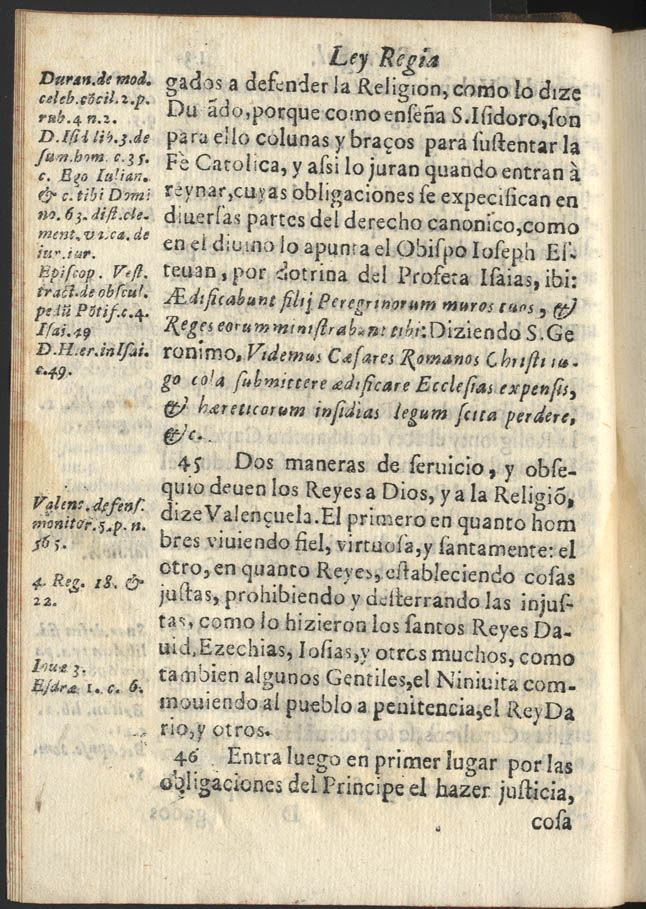 Ley Regia
gados a defender la Religion, como lo dize
Du ãdo, porque como enseña S. Isidoro, son
para ello colunas y braços para sustentar la
Fè Catolica, y assi lo juran quando entran à
reynar, cuyas obligaciones se expecifican en
diuersas partes del derecho canonico, como
en el diuino lo apunta el Obispo Ioseph Es-
teuan, por dotrina del Profeta Isaias, ibi:
Ædificabunt filij Peregrinorum muros tuos, &
Reges eorum ministrabunt tibi: Diziendo S. Ge
ronimo, Videmus Cæsares Romanos Christi iu-
go cola submittere ædificare Ecclesias expensis,
& hæreticorum insidias legum scita perdere,
&c.
45 Dos maneras de seruicio, y obse-
quio deuen los Reyes a Dios, y a la Religiõ,
dize Valençuela. El primero en quanto hom
bres viuiendo fiel, virtuosa, y santamente: el
otro, en quanto Reyes, estableciendo cosas
justas, prohibiendo y desterrando las injus-
tas, como lo hizieron los santos Reyes Da-
uid, Ezechias, Iosias, y otros muchos, como
tambien algunos Gentiles, el Niniuita com-
mouiendo al pueblo a penitencia, el Rey Da
rio, y otros.
46 Entra luego en primer lugar por las
obligaciones del Principe el hazer justicia,
cosa
Duran. de mod.
celeb. cõcil. 2. p.
rub. 4 n. 2.
D. Isid lib. 3. de
sum. bom. c. 35.
c. Ego Iulian.
& c. tibi Domi
no. 63. dist. cle-
ment. vnica. de
iur. iur.
Episcop. Vest.
tract. de obscul.
pedũ Põtif. c. 4.
Isai. 49
D. Hier. in Isai.
c. 49.
Valenc. defens.
monitor. 5. p. n.
565.
4. Reg. 18. &
22.
3.
Esdræ 1. c. 6.